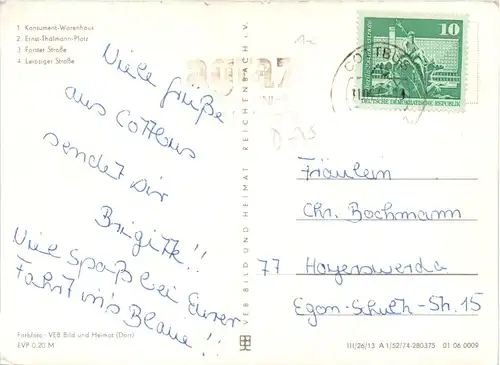 1 Konsument-Warenhaus
2 Ernst-Thälmann-Platz
3 Forster Straße
4 Leipziger Straße
Viele Grüße
aus Cottbus
sendet Dir
Brigitte!!
Viel Spaß bei Eurer
Fahrt in's Blaue!!
Farbfoto: VEB Bild und Heimat (Dorr)
EVP 0,20 M
VEB BILD UND HEIMAT REICHENBACH i. V.
10
DEUTSCHE DEMOKRATISCHE REPUBLIK
COTTBUS
Fräulein
Chr. Bochmann
77 Hoyerswerda
Egon-Schulh-Sh. 15
III/26/13 A 1/52/74-280375 01 06 0009